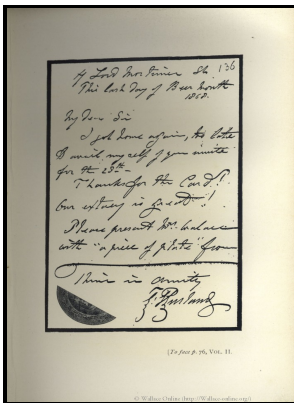 4 Lord Mortimer St. 136
This last day of Beer Month
1868.
My Dear Sir
I got home again, too late
to avail myself of your invite
for the 28th—
Thanks for the Card!
Our extasy is great!
Please present Mrs. Wallace
with "a piece of plate" from
Thine in amity
[To face p. 76, VOL. II.
© Wallace Online (http://Wallace-online.org/)